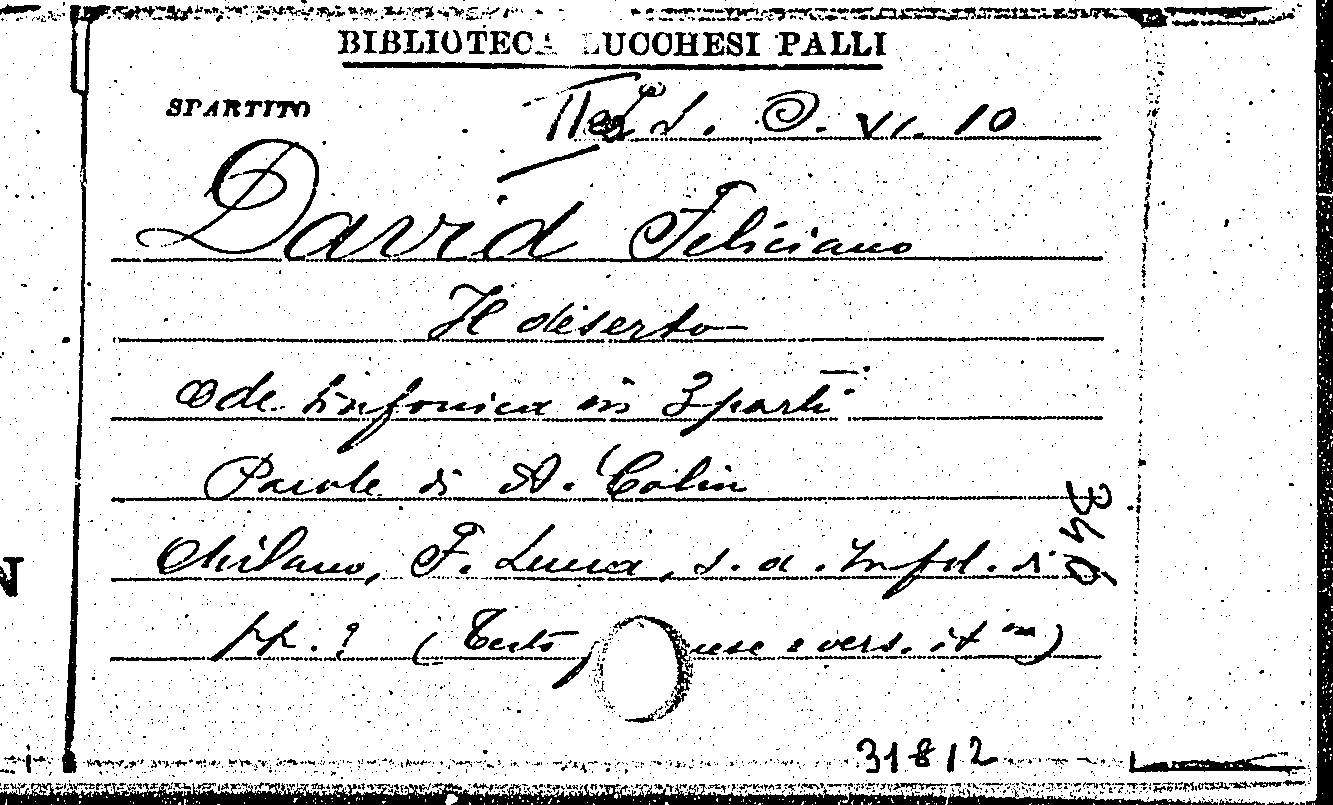 BIBLIOTECA LUCCHESI PALLI
SPARTITO
O. VI. 10
David Feliciano
Il diserto
Ode sinfonica in 3 parti
Parole di A. Colin
Milano, F. Lucca, s. a. In fol. di
pp. ? (Testo e vers. it na)
340
31812
N